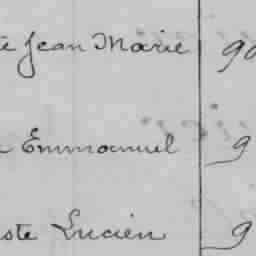 te Jean Marie 90
Emmanuel 9
ste Lucien 9